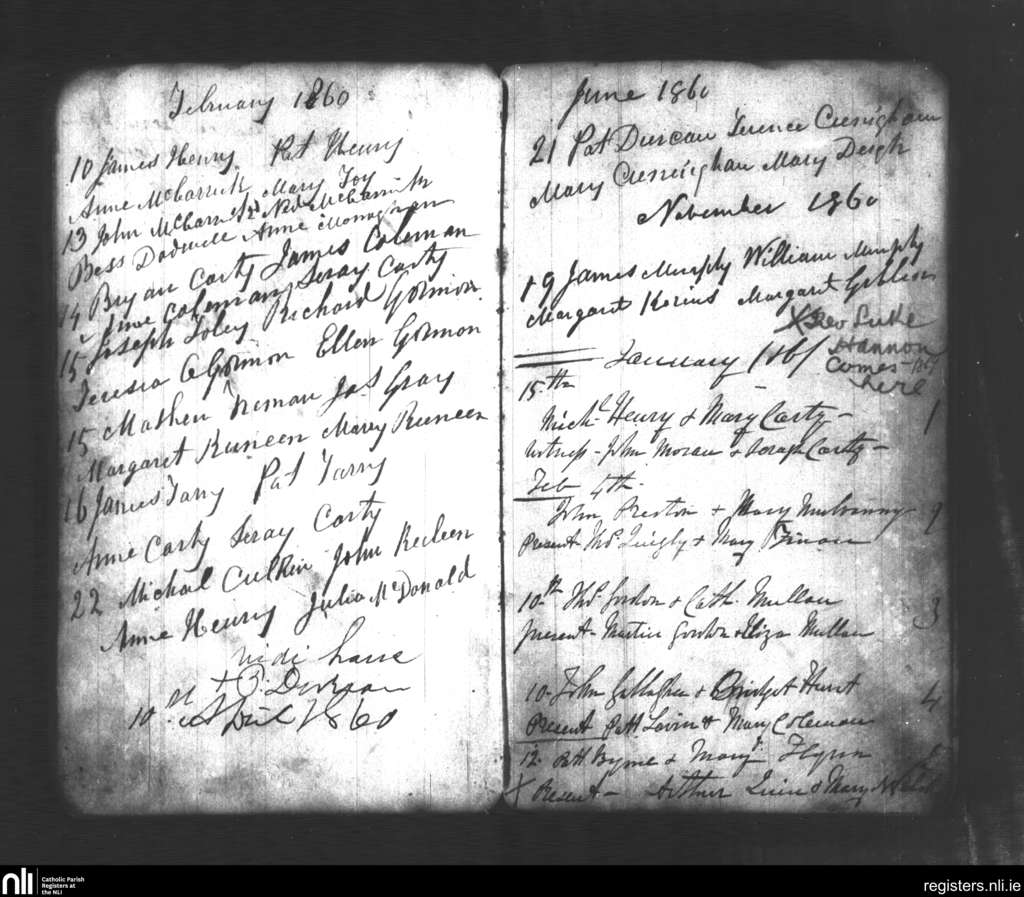 February 1860
10 James Henry Pat Henry
Anne McGarrick Mary Foy
13 John McGarrick Ned McGarrick
Bess Dodwell Anne Monaghan
14 Bryan Carty James Coleman
Anne Coleman Seray Carty
15 Joseph Foley Richard Gormon
Teresia O Gormon Ellen Gormon
15 Mathew Jas Gray
Margaret Runeen Mary Runeen
16 James Tarry Pat Tarry
Anne Carty Seray Carty
22 Michael Culkin John
Anne Henry Julia McDonald
vidi hasce
+ P. Durcan
10th April 1860
June 1860
21 Pat Durcan Terence Cunigham
Mary Cunigham Mary Deigh
November 1860
19 James Murphy William Murphy
Margaret Margaret
X Rev Luke
Hannon
Comes in
here
January 1861
15th
Michl Henry & Mary Carty - 1
Witness - John Moran & Carty -
Feb 4th
John Preston & Mary Mulvanny 2
Present Thos & Mary Finan
10th Thos Gordon & Cath. Mullan 3
present - Martin Gordon & Eliza Mullan
10 - John Gallagher & Bridget Hunt 4
Present Patt Lavin & Mary Coleman
12. Patt Byrne & Mary Flynn 5
X Present - Arthur & Mary
nli
Catholic Parish
Registers at
the NLI
registers.nli.ie